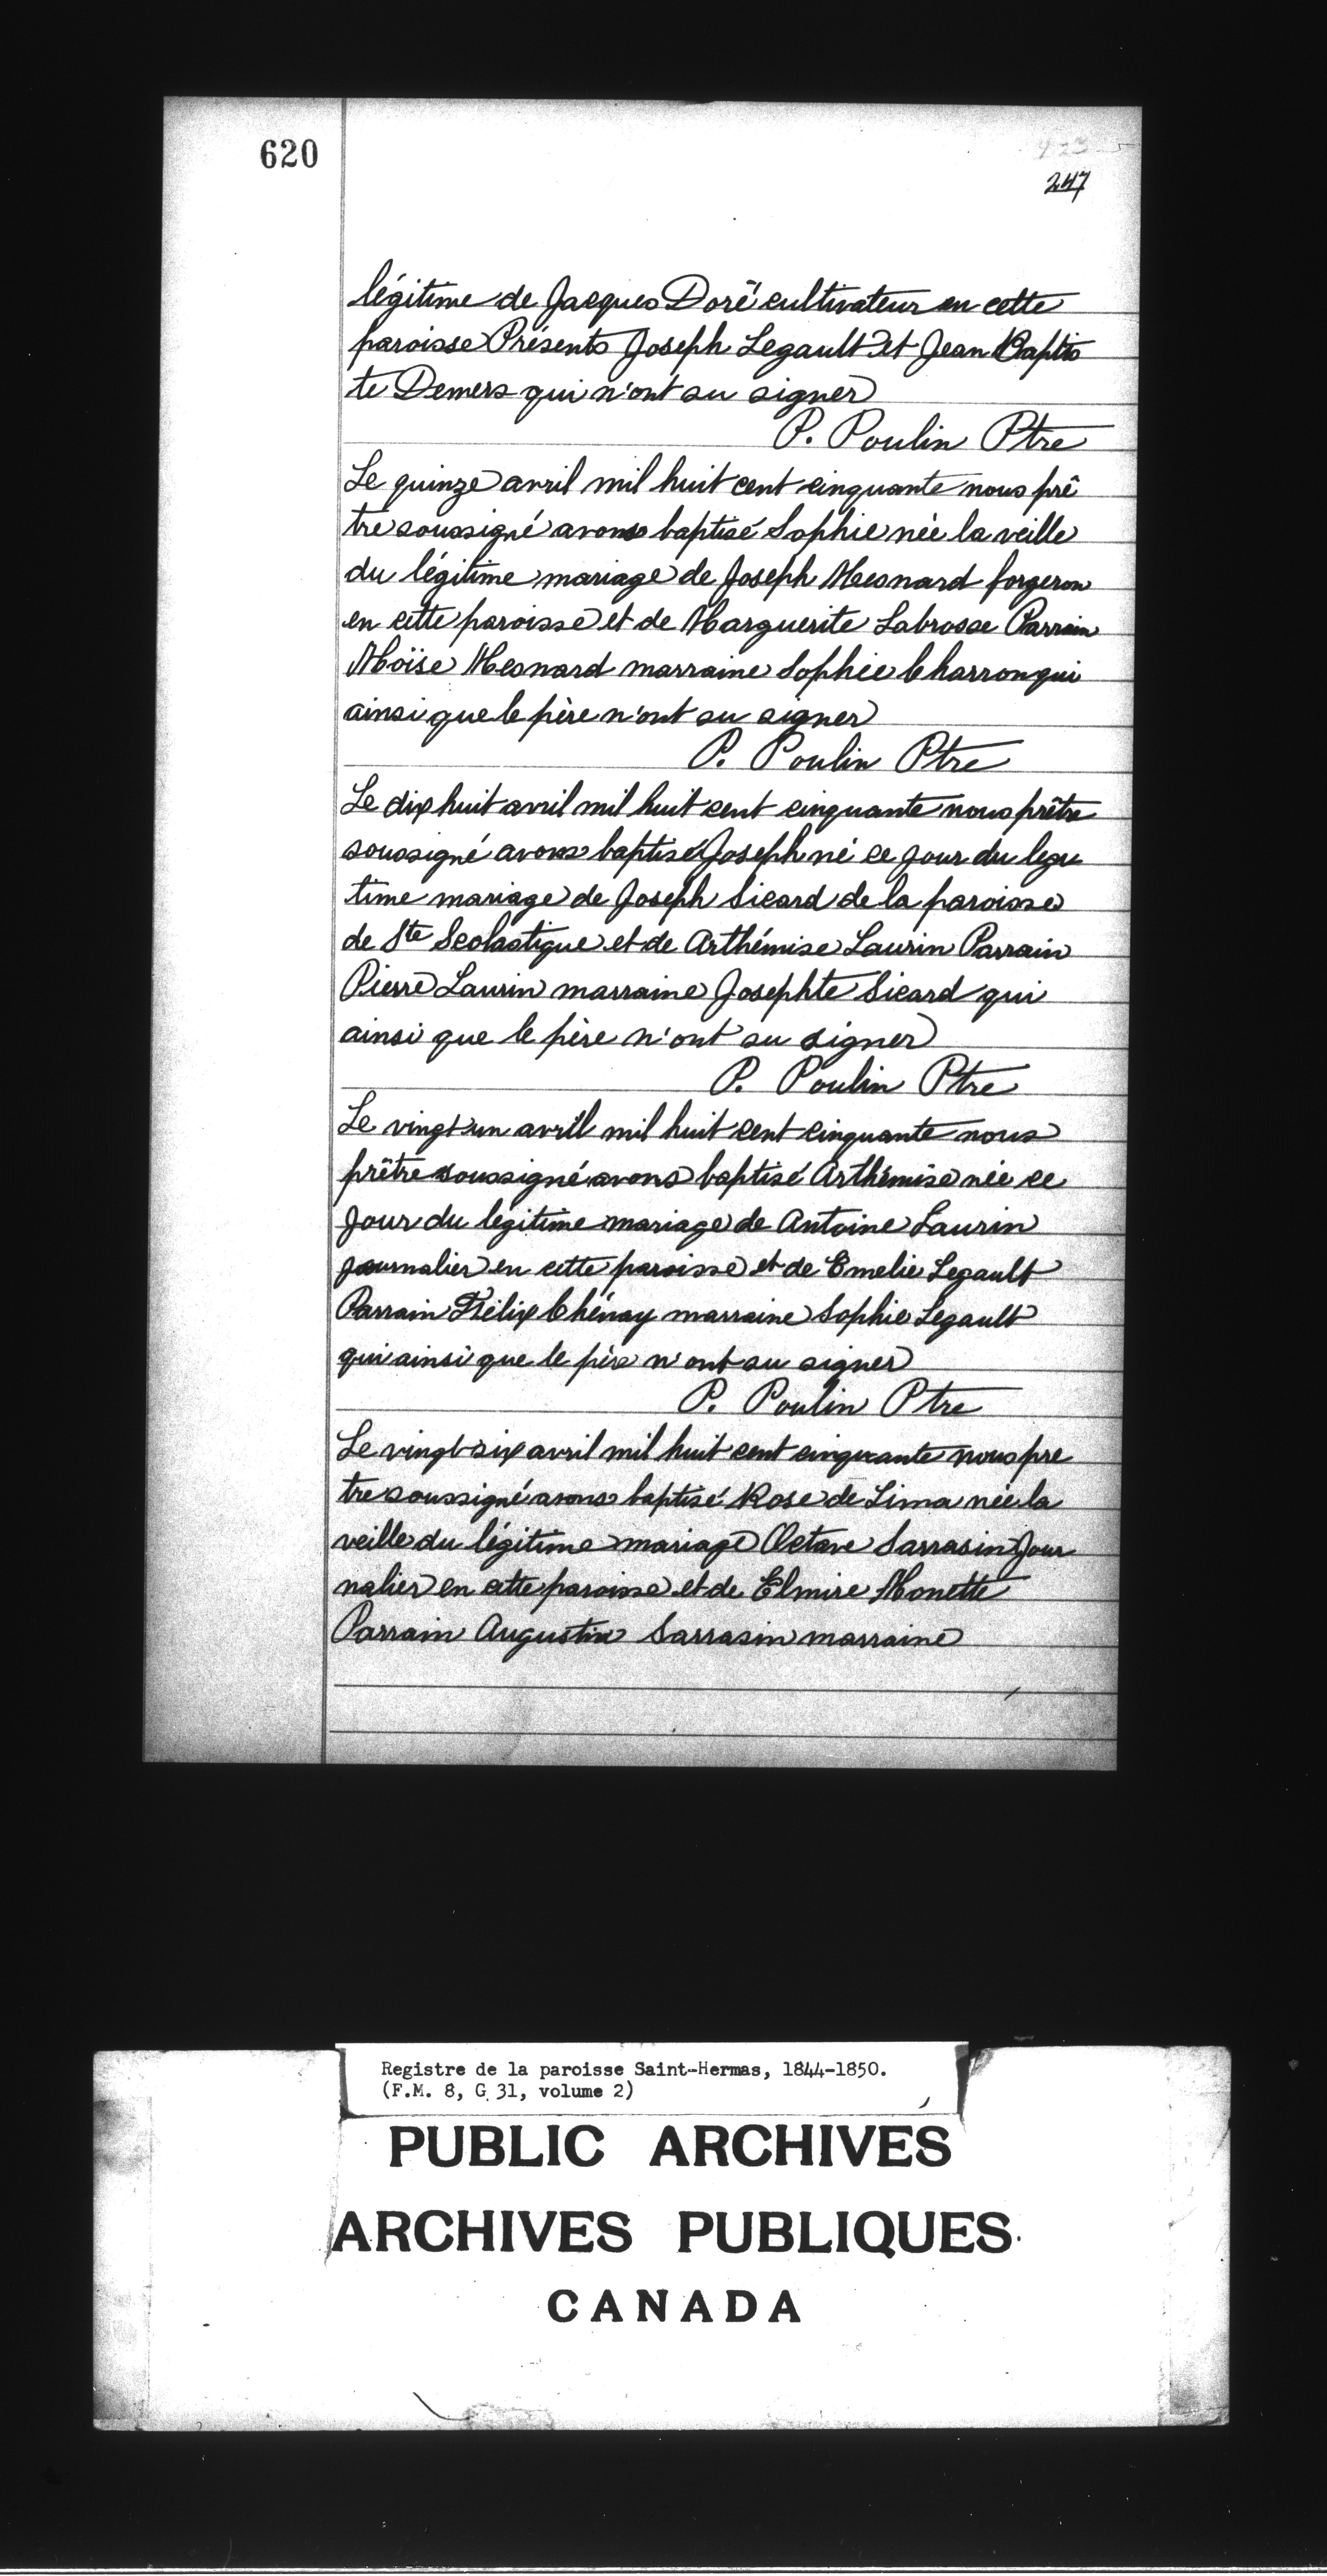 620
247
légitime de Jacques Doré cultivateur en cette
paroisse Présents Joseph Legault et Jean Baptis
te Demers qui n'ont su signer
P. Poulin Ptre
Le quinze avril mil huit cent cinquante nous prê
tre soussigné avons baptisé Sophie née la veille
du légitime mariage de Joseph Mesnard forgeron
en cette paroisse et de Marguerite Labrosse Parrain
Moïse Mesnard marraine Sophie Charron qui
ainsi que le père n'ont su signer
P. Poulin Ptre
Le dix huit avril mil huit cent cinquante nous prêtre
soussigné avons baptisé Joseph né ce jour du légi
time mariage de Joseph Sicard de la paroisse
de Ste Scolastique et de Arthémise Laurin Parrain
Pierre Laurin marraine Josephte Sicard qui
ainsi que le père n'ont su signer
P. Poulin Ptre
Le vingt un avril mil huit cent cinquante nous
prêtre soussigné avons baptisé Arthémise née ce
jour du légitime mariage de Antoine Laurin
journalier en cette paroisse et de Emelie Legault
Parrain Félix Chénay marraine Sophie Legault
qui ainsi que le père n'ont su signer
P. Poulin Ptre
Le vingt six avril mil huit cent cinquante nous pre
tre soussigné avons baptisé Rose de Lima née la
veille du légitime mariage Octave Sarrasin jour
nalier en cette paroisse et de Elmire Monette
Parrain Augustin Sarrasin marraine
Registre de la paroisse Saint-Hermas, 1844-1850.
(F.M. 8, G 31, volume 2)
PUBLIC ARCHIVES
ARCHIVES PUBLIQUES
CANADA